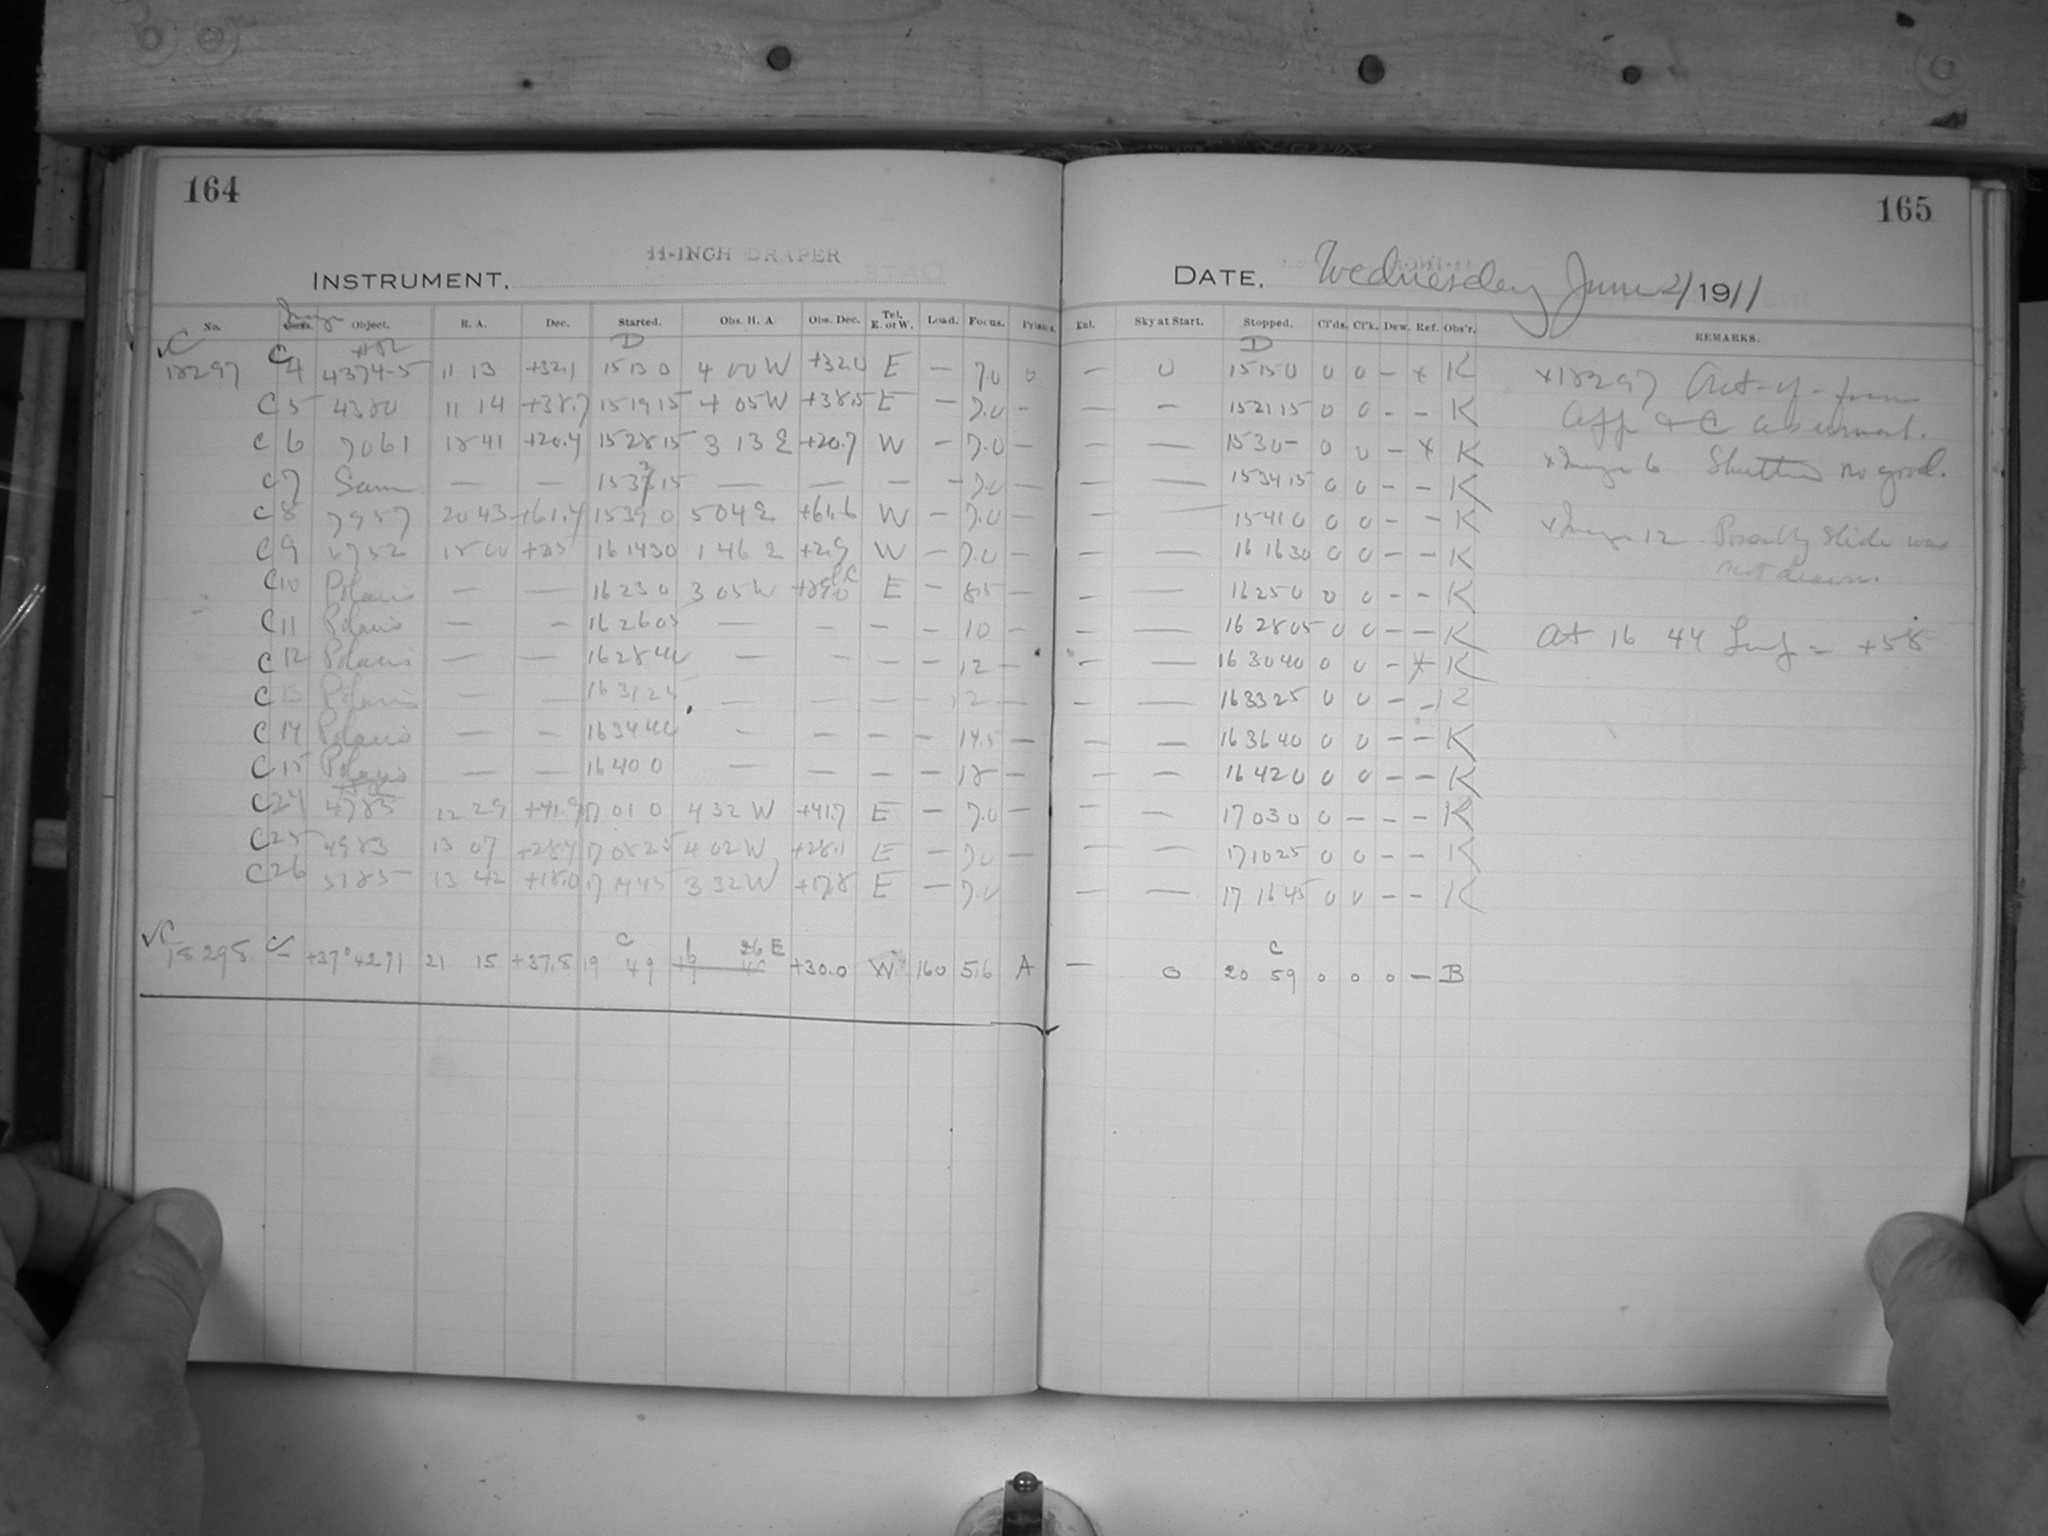 164
11-INCH DRAPER
INSTRUMENT.
No. Object. R. A. Dec. Started. Obs. H. A. Obs. Dec. Tel. E. or W. Load. Focus. Prisms.
C D
18297 C 4 4374-5 11 13 +32.1 15 13 0 4 00 W +32.0 E — 7.0 0
C 5 4380 11 14 +38.7 15 19 15 4 05 W +38.5 E — 7.0 -
C 6 7061 18 41 +20.4 15 28 15 3 13 E +20.7 W — 7.0 —
C 7 Same — — 15 32 15 — — — — 7.0 —
C 8 7957 20 43 +61.4 15 39 0 5 04 E +61.6 W — 7.0 —
C 9 6752 18 00 16 14 30 1 46 E +2.9 W — 7.0 —
C 10 Polaris — — 16 23 0 3 05 W E — 8.5 —
C 11 Polaris — — 16 26 05 — — — — 10 —
C 12 Polaris — — 16 28 40 — — — — 12 —
C 13 Polaris — — 16 31 25 — — — — 12 —
C 14 Polaris — — 16 34 40 — — — — 14.5 —
C 15 Polaris — — 16 40 0 — — — — 18 —
C 24 4785 12 29 +41.9 17 01 0 4 32 W +41.7 E — 7.0 —
C 25 4983 13 07 +28.4 17 08 25 4 02 W +28.1 E — 7.0 —
C 26 5185 13 42 +18.0 17 14 45 3 32 W +17.8 E — 7.0
C C 1 26 E
18298 C +37°4271 21 15 +37.8 19 49 +30.0 W 160 51.6 A
165
DATE. Wednesday June 21 1911
Enl. Sky at Start. Stopped. Cl'ds. Cl'k. Dew. Ref. Obs'r. REMARKS.
D
— 0 15 15 0 0 0 - x K x18297 Out-of-focus
— - 15 21 15 0 0 - - K app & C as usual.
— — 15 30 - 0 0 - x K x Image 6 Shutter no good.
— — 15 34 15 0 0 - - K
— — 15 41 0 0 0 - - K x Image 12 Possibly slide was
— — 16 16 30 0 0 - - K not drawn.
— — 16 25 0 0 0 - - K
— — 16 28 05 0 0 - - K At 16 44 = +58
— — 16 30 40 0 0 - x K
— — 16 33 25 0 0 - - K
— — 16 36 40 0 0 - - K
— — 16 42 0 0 0 - - K
— — 17 03 0 0 - - - K
— — 17 10 25 0 0 - - K
— — 17 16 45 0 0 - - K
C
— 0 20 59 0 0 0 — B